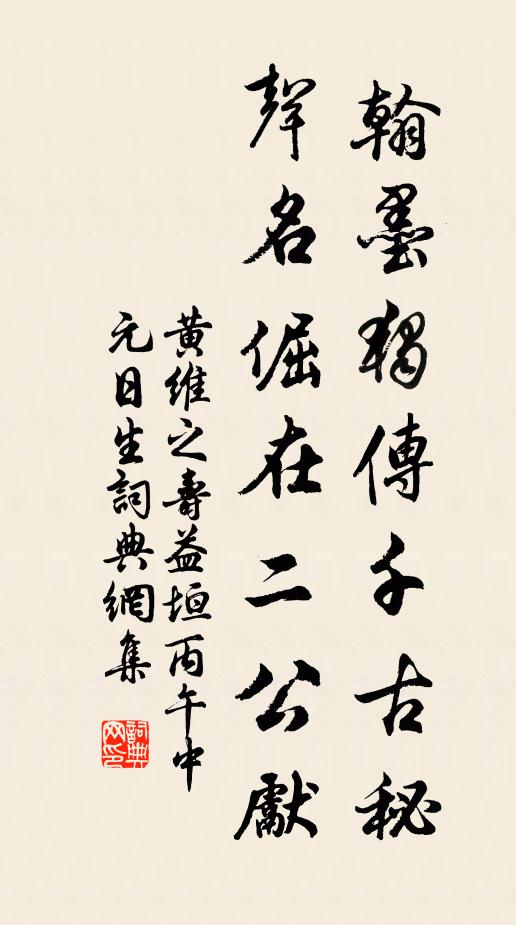 翰墨獨傳千古秘
聲名倔在二公獻
黃維之壽益垣丙午中
元日生詞典網集
詞典
网印